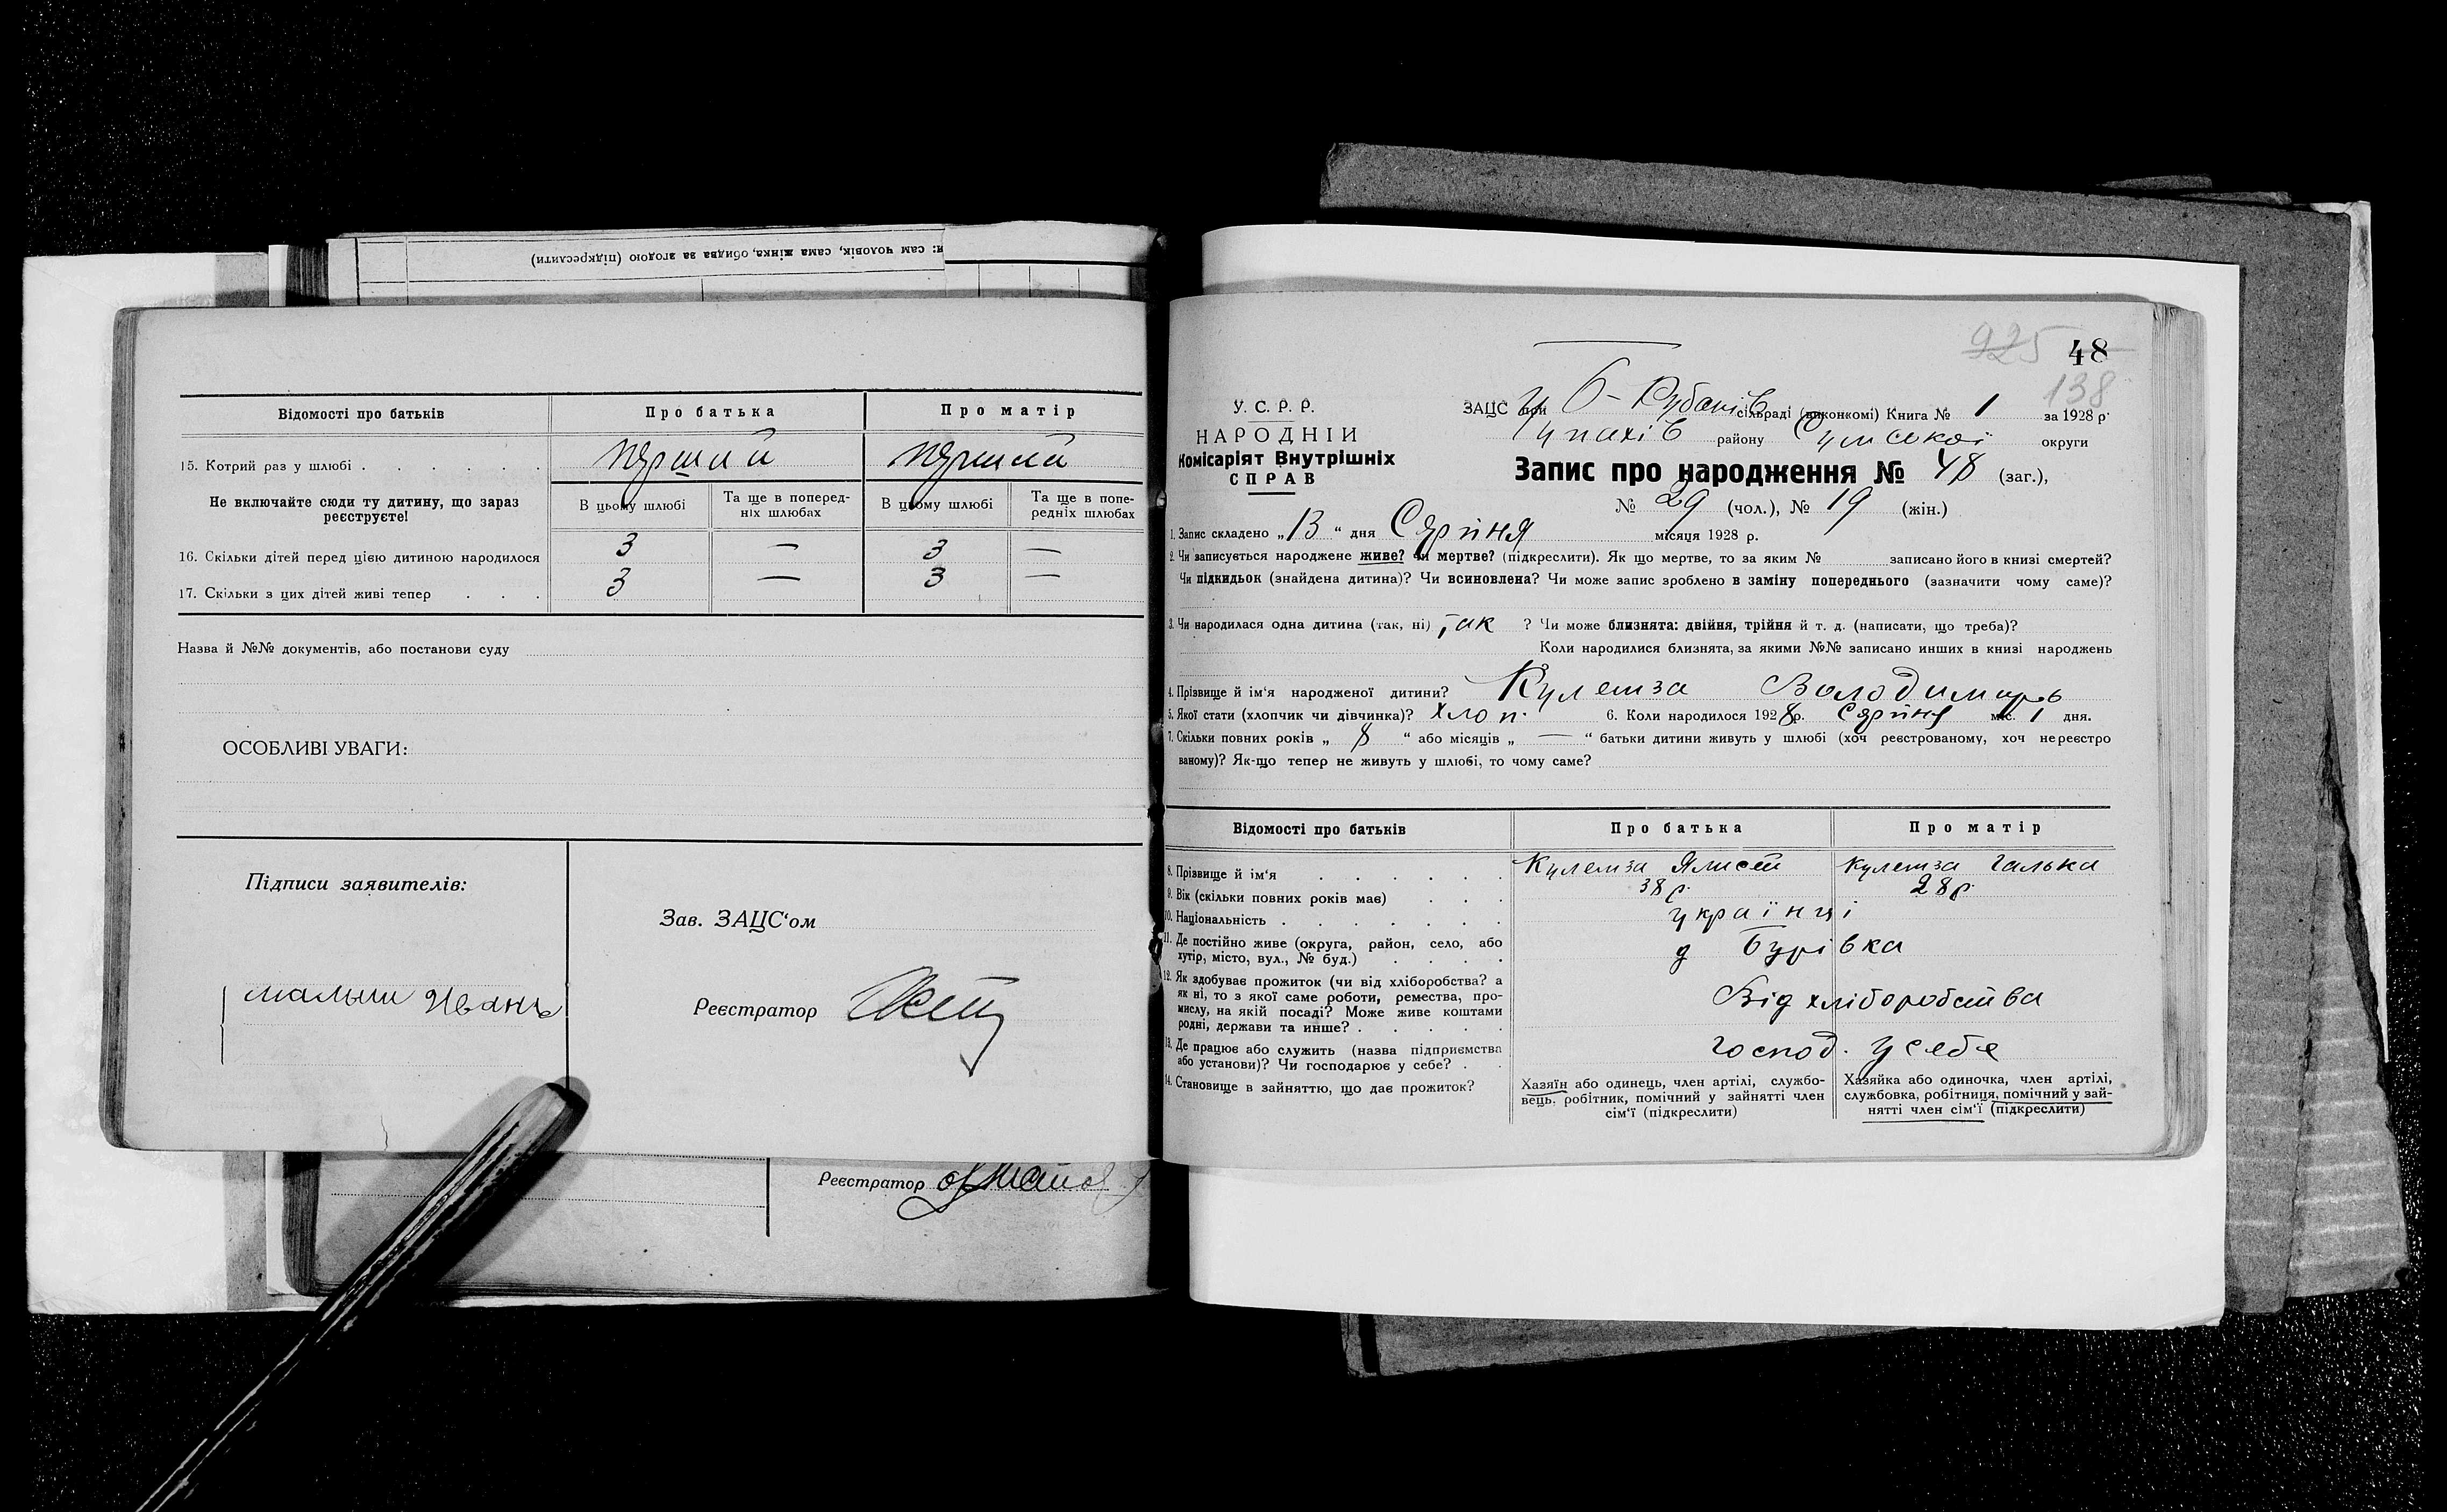 и: сам чоловік, сама жінка, обидва за згодою (підкреслити)
Відомості про батьків
Про батька
Про матір
15. Котрий раз у шлюбі
перший
перший
Не включайте сюди ту дитину, що зараз реєструєте!
В цьому шлюбі
Та ще в поперед-
ніх шлюбах
В цьому шлюбі
Та ще в попе-
редніх шлюбах
16. Скільки дітей перед цією дитиною народилося
3 — 3 —
17. Скільки з цих дітей живі тепер
3 — 3 —
Назва й №№ документів, або постанови суду
ОСОБЛИВІ УВАГИ:
Підписи заявителів:
Зав. ЗАЦС‘ом
Малыш Иванъ
Реєстратор
Реєстратор
925 48
138
У. С. Р. Р.
НАРОДНІЙ
Комісаріят Внутрішніх
СПРАВ
ЗАЦС при Б-Рубанів сільраді (виконкомі) Книга № 1 за 1928 р.
району Сумської округи
Запис про народження № 48 (заг.),
№ 29 (чол.), № 19 (жін.)
1. Запис складено „13“ дня Серпня місяця 1928 р.
2. Чи записується народжене живе? чи мертве? (підкреслити). Як що мертве, то за яким № записано його в книзі смертей?
Чи підкидьок (знайдена дитина)? Чи всиновлена? Чи може запис зроблено в заміну попереднього (зазначити чому саме)?
3. Чи народилася одна дитина (так, ні) так ? Чи може близнята: двійня, трійня й т. д. (написати, що треба)?
Коли народилися близнята, за якими №№ записано инших в книзі народжень
4. Прізвище й ім‘я народженої дитини? Кулемза Володимиръ
5. Якої стати (хлопчик чи дівчинка)? хлоп. 6. Коли народилося 1928 р. Серпня міс. 1 дня.
7. Скільки повних років „ 8 “ або місяців „ — “ батьки дитини живуть у шлюбі (хоч реєстрованому, хоч нереєстро
ваному)? Як-що тепер не живуть у шлюбі, то чому саме?
Відомості про батьків
Про батька
Про матір
8. Прізвище й ім‘я
Кулемза
Кулемза Галька
9. Вік (скільки повних років має)
38 р.
28 р.
10. Національність
українці
11. Де постійно живе (округа, район, село, або
хутір, місто, вул., № буд.)
Бурівка
12. Як здобуває прожиток (чи від хліборобства? а
як ні, то з якої саме роботи, ремества, про-
мислу, на якій посаді? Може живе коштами
родні, держави та инше?
Від хліборобства
13. Де працює або служить (назва підприємства
або установи)? Чи господарює у себе?
господ. у себе
14. Становище в зайняттю, що дає прожиток?
Хазяїн або одинець, член артілі, службо-
вець, робітник, помічний у зайнятті член
сім‘ї (підкреслити)
Хазяйка або одиночка, член артілі,
службовка, робітниця, помічний у зай-
нятті член сім‘ї (підкреслити)